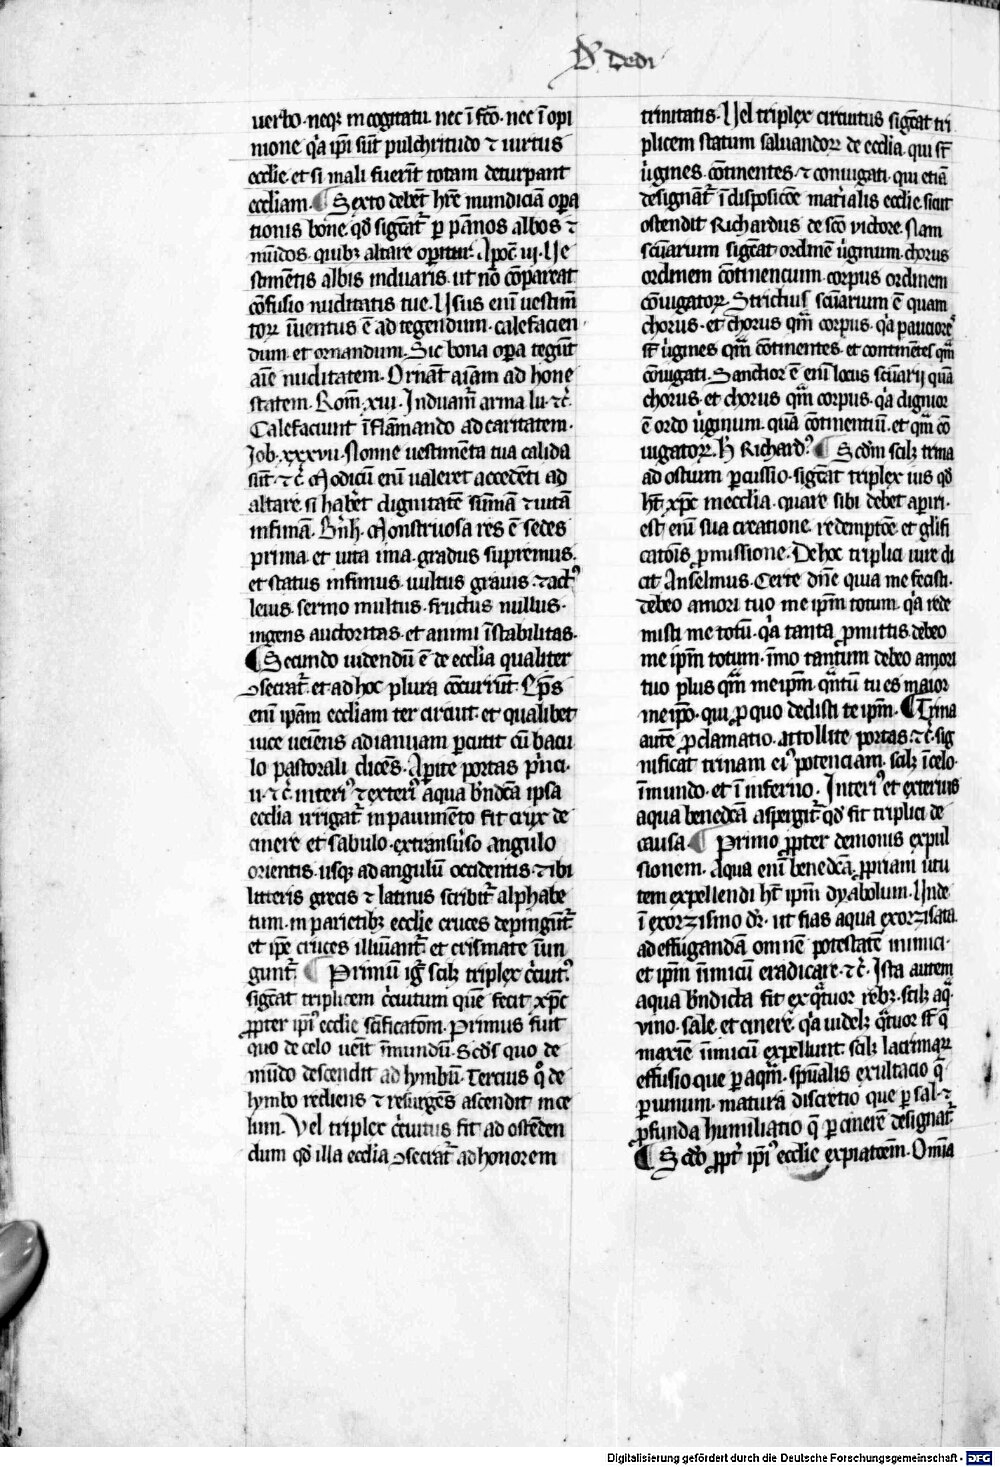 Dꝰ Dedi
uerbo· neqꝫ in cogitatu· nec ī fcō· nec ī opi
nione q̇a ip̄i sūt pulchritudo ⁊ uirtus
eccl̄ie et si mali fuer̄it totam deturpant
eccliam· ¶ Sexto debēt hr̄e mundiciā oꝑa
tionis bone· qd̄ sigᷓcat᷑ ꝑ pānos albos ⁊
mūdos· quibꝫ altare oꝑitur· Apoc̄ iij· Ue
stimētis albis induaris· ut nō cōpareat
cōfusio nuditatis tue· Usus enī uestim̄
toꝝ īuentus ē ad tegendum· calefacien
dum et ornandum· Sic bona oꝑa tegūt
aīe nuditatem· Ornāt aīam ad hone
statem· Rom̄· xiii· Induam̄ arma lu· ⁊c̄·
Calefaciunt īflāmando ad caritatem·
Job· xxxvii· Nonne uestimēta tua calida
sūt· ⁊c̄· Modicū enī ualeret accedēti ad
altare si habet̄ dignitatē sūmā ⁊ uitā
infimā· Bn̄h· Monstruosa res ē sedes
prima· et uita ima· gradus supremus·
et status infimus· uultus grauis· ⁊ actꝰ
leuis· sermo multus· fructus nullus·
ingens auctoritas· et animi īstabilitas·
¶ Secundo uidendū ē de eccl̄ia qualiter
ꝯsecrat᷑· et ad hoc plura cōcurrūt· Ep̄s
enī ip̄am eccl̄iam ter circuit· et qualibet
uice ueīens ad ianuam ꝑcutit cū bacu
lo pastorali dicēs· Aꝑite portas pⁱnci·
u· ⁊c̄· interiꝰ ⁊ exteriꝰ aqua bn̄dcā ipsa
eccl̄ia irrigat᷑ in pauimēto fit crux de
cinere et sabulo· ex transuⁱso angulo
orientis· usqꝫ ad angulū occidentis· ⁊ ibi
litteris grecis ⁊ latinis scribit᷑ alphabe
tum· in parietibꝫ eccl̄ie cruces depingūt᷑
et ip̄e cruces illuīant᷑ et crismate īun
gunt᷑· ¶ Primū ig̊ scilꝫ triplex cⁱcuitꝰ
sigᷓcat triplicem cⁱcuitum quē fecit xp̄c
ꝓpter ip̄iꝰ eccl̄ie scīficatōm· Primus fuit
quo de celo uēit ī mundū· Scd̄s quo de
mūdo descendit ad lymbū· Tercius qͦ de
lymbo rediens ⁊ resurgēs ascendit in ce
lum· Vel triplex cⁱcuitus fit ad ostēden
dum qd̄ illa eccl̄ia ꝯsecrat᷑ ad honorem
trinitatis· Uel triplex circuitus sigᷓcat tri
plicem statum saluandoꝝ de eccl̄ia· qui sūt
uⁱgines· cōtinentes· ⁊ coniugati· qui etiā
designāt᷑ ī disposicōe matⁱialis eccl̄ie sicut
ostendit Richardus de scō victore· Nam
scūarium sigᷓcat ordinē uⁱginum· chorus
ordinem cōtinencium· corpus ordinem
cōiugatoꝝ· Strictius scūarium ē quam
chorus· et chorus qᷓm corpus· q̇a paucioreˢ
sūt uⁱgines qᷓm cōtinentes· et continētes qᷓm
cōiugati· Sanctior ē enī locus scūarij quā
chorus· et chorus qᷓm corpus· q̇a dignior
ē ordo uⁱginum· quā cōtinentiū· et qᷓm cō
iugatoꝝ· H̄ Richardꝰ ¶ Scd̄m scilꝫ trina
ad ostium ꝑcussio· sigᷓcat triplex ius qd̄
ht̄ xp̄c in ecclia· quare sibi debet aꝑiri·
est enī sua creatione· redemptōe et glīfi
catōis ꝓmissione· De hoc triplici iure di
cit Anselmus· Certe dn̄e quia me fecisti·
debeo amori tuo me ip̄m totum· q̇a rede
misti me totū· q̇a tanta ꝓmittis debeo
me ip̄m totum· īmo tantum debeo amori
tuo plus qᷓm meip̄m· qn̄tū tu es maior
me ip̄o· qui ꝓ quo dedisti te ip̄m· ¶ Trina
autē ꝓclamatio· attollite portas· ⁊c̄· sig
nificat trinam eiꝰ potenciam· scilꝫ ī celo·
ī mundo· et ī inferno· Interiꝰ et exterius
aqua benedcā aspergit᷑ qd̄ fit triplici de
causa· ¶ Primo ꝓpter demonis expul
sionem· Aqua enī benedcā ꝓpriam uⁱtu
tem expellendi ht̄ ip̄m dyabolum· Unde
ī exorzismo dr̄· ut fias aqua exorzisata
ad effugandā omnē potestatē inimici·
et ip̄m īimicū eradicare· ⁊c̄· Ista autem
aqua bn̄dicta fit ex qᷓtuor rebꝫ· scilꝫ aqᷓ·
vino· sale· et cinere· q̇a uidelꝫ qᷓtuor sūt q̄
maxīe īimicū expellunt· scilꝫ lacrimaꝝ
effusio que ꝑ aqᷓm· spūalis exultacio q̄
ꝑ uinum· matura discretio que ꝑ sal· ⁊
ꝓfunda humiliatio q̄ ꝑ cinerē designat᷑·
¶ Scd̄o ꝓpt̄ ip̄iꝰ eccl̄ie expiatōem· Omīa
Digitalisierung gefördert durch die Deutsche Forschungsgemeinschaft - DFG